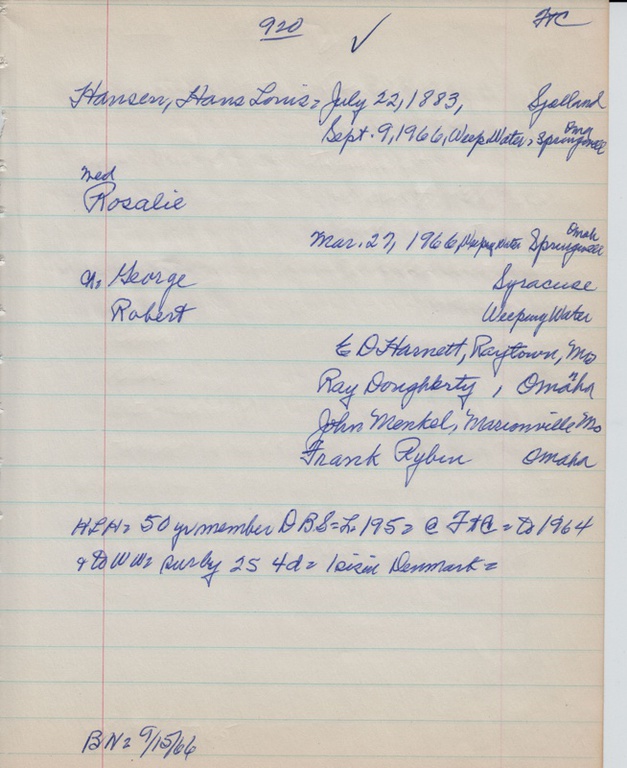 920 FtC
Hansen, Hans Louis = July 22, 1883, Sjelland
Oma
Sept. 9, 1966, Weep Water = Springwell
med
Rosalie
Omah
Mar. 27, 1966, Weeping Water Springwell
ch= George Syracuse
Robert Weeping Water
E D Harnett, Raytown, Mo
Ray Dougherty, Omaha
John Menkel, Marionville Mo
Frank Rybin Omaha
HLH = 50 yr member DBS = L 195 = @ FtC = to 1964
& to WW = surby 2S 4d = 1 sis in Denmark =
BN = 9/15/66